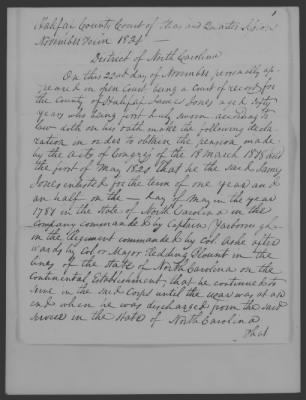 1
Halifax County Court of Pleas and Quarter Session
November Term 1821 —
District of North Carolina
On this 22nd day of November personally ap-
peared in open Court being a Court of record for
the County of Halifax James Jones aged sixty
years who being first duly sworn according to
law doth on his oath make the following decla-
ration in order to obtain the pension made
by the acts of Congress of the 18 March 1818 and
the first of May 1820 that he the said James
Jones enlisted for the term of one year and
an half on the — day of May in the year
1781 in the State of North Carolina in the
company commanded by Captain Yarborough
in the Regiment commanded by Col. Ashe after
wards by Col or Major Redding Blount in the
lines of the State of North Carolina on the
Continental Establishment, that he continued to
serve in the said Corps until the war was at an
end when he was discharged from the said
service in the State of North Carolina
That